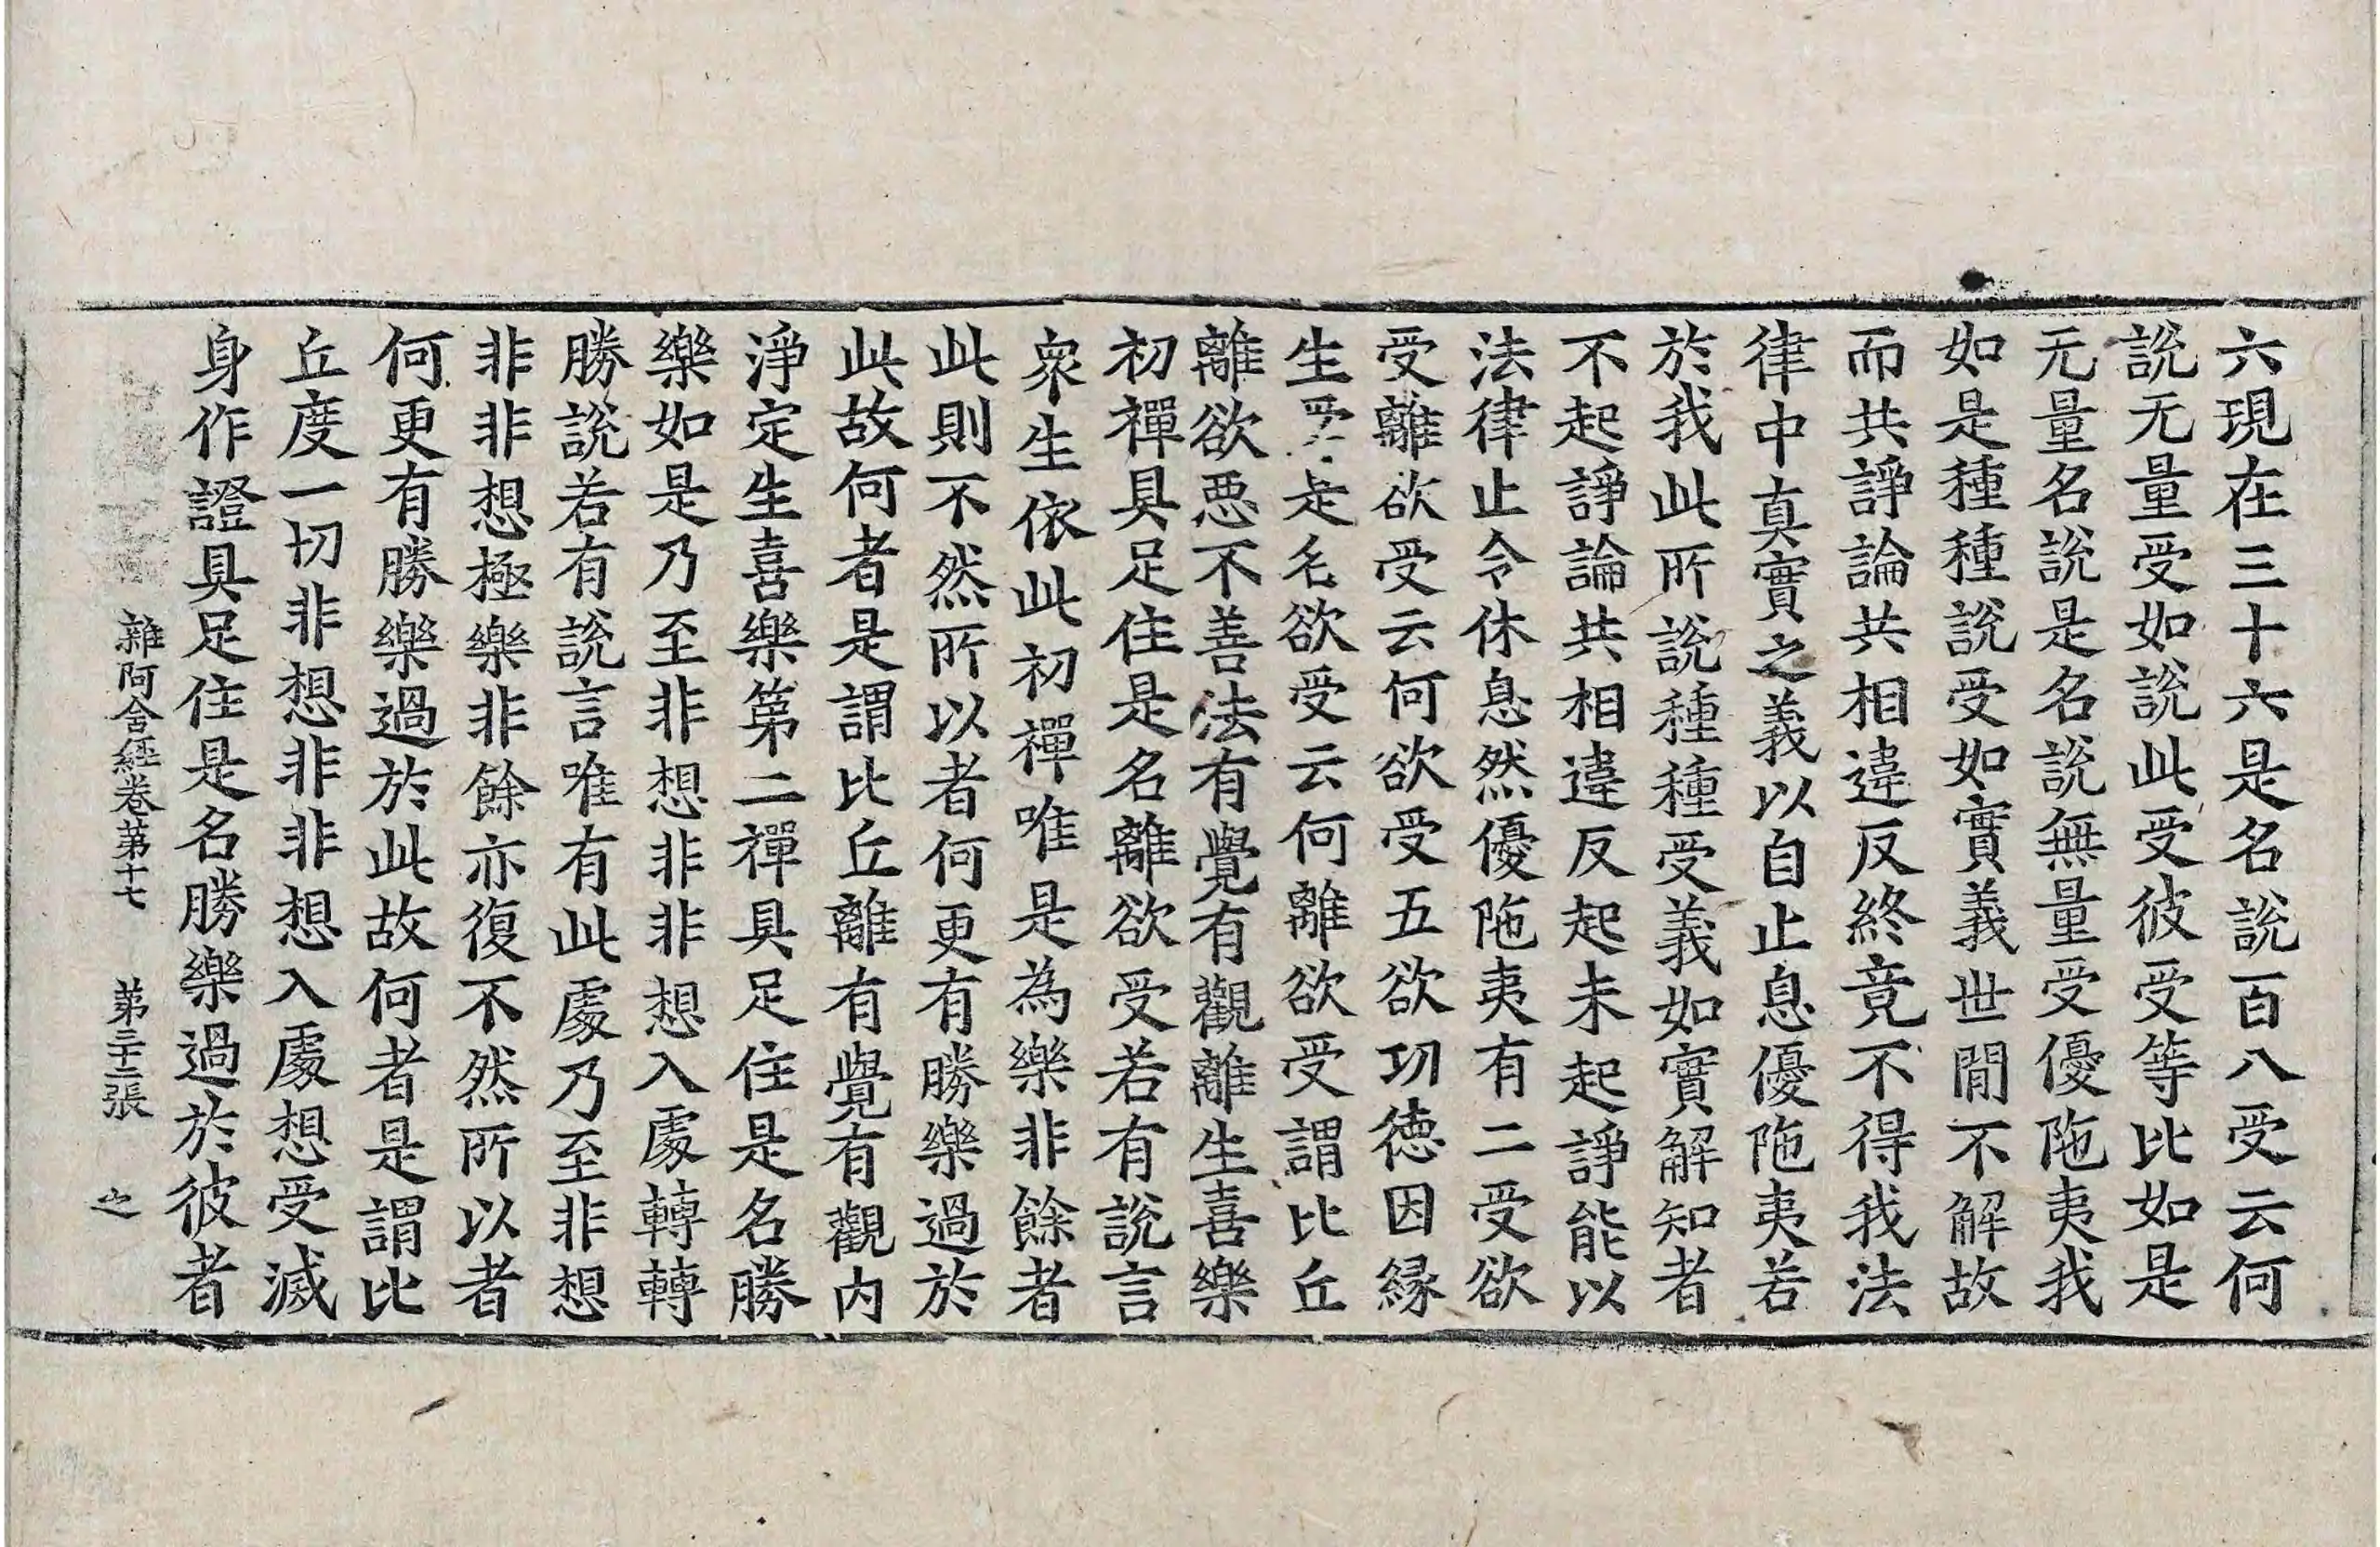 六現在三十六是名說百八受云何
說无量受如說此受彼受等比如是
无量名說是名說無量受優陁夷我
如是種種說受如實義世閒不解故
而共諍論共相違反終竟不得我法
律中真實之義以自止息優陁夷若
於我此所說種種受義如實解知者
不起諍論共相違反起未起諍能以
法律止令休息然優陁夷有二受欲
受離欲受云何欲受五欲功德因緣
生受是名欲受云何離欲受謂比丘
離欲惡不善法有覺有觀離生喜樂
初禪具足住是名離欲受若有說言
衆生依此初禪唯是為樂非餘者
此則不然所以者何更有勝樂過於
此故何者是謂比丘離有覺有觀內
淨定生喜樂第二禪具足住是名勝
樂如是乃至非想非非想入處轉轉
勝說若有說言唯有此處乃至非想
非非想極樂非餘亦復不然所以者
何更有勝樂過於此故何者是謂比
丘度一切非想非非想入處想受滅
身作證具足住是名勝樂過於彼者
雜阿含經卷第十七 第三十二張 之